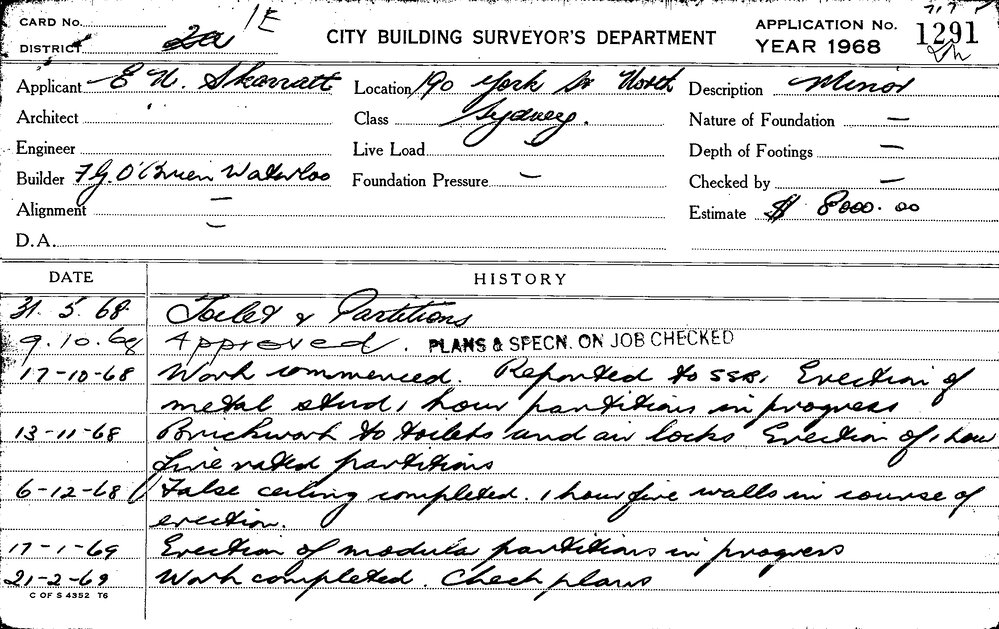 CARD No.
1E
CITY BUILDING SURVEYOR'S DEPARTMENT
APPLICATION No. 1291
DISTRICT 2a
YEAR 1968
Applicant E N. Skarratt
Location 190 York St North
Description Minor
Architect
Class Sydney.
Nature of Foundation —
Engineer
Live Load
Depth of Footings —
Builder F.G. O'Brien Waterloo
Foundation Pressure —
Checked by —
Alignment —
Estimate $ 8000.00
D.A. —
DATE HISTORY
31. 5. 68. Toilet & Partitions
9.10.68 Approved. PLANS & SPECN. ON JOB CHECKED
17-10-68 Work commenced. Reported to SSB, Erection of
metal stud 1 hour partitions in progress
13-11-68 Brickwork to toilets and air locks Erection of 1 hour
fire rated partitions
6-12-68 False ceiling completed. 1 hour fire walls in course of
erection.
17-1-69 Erection of modula partitions in progress
21-2-69 Work completed. Check plans
C OF S 4352 T6